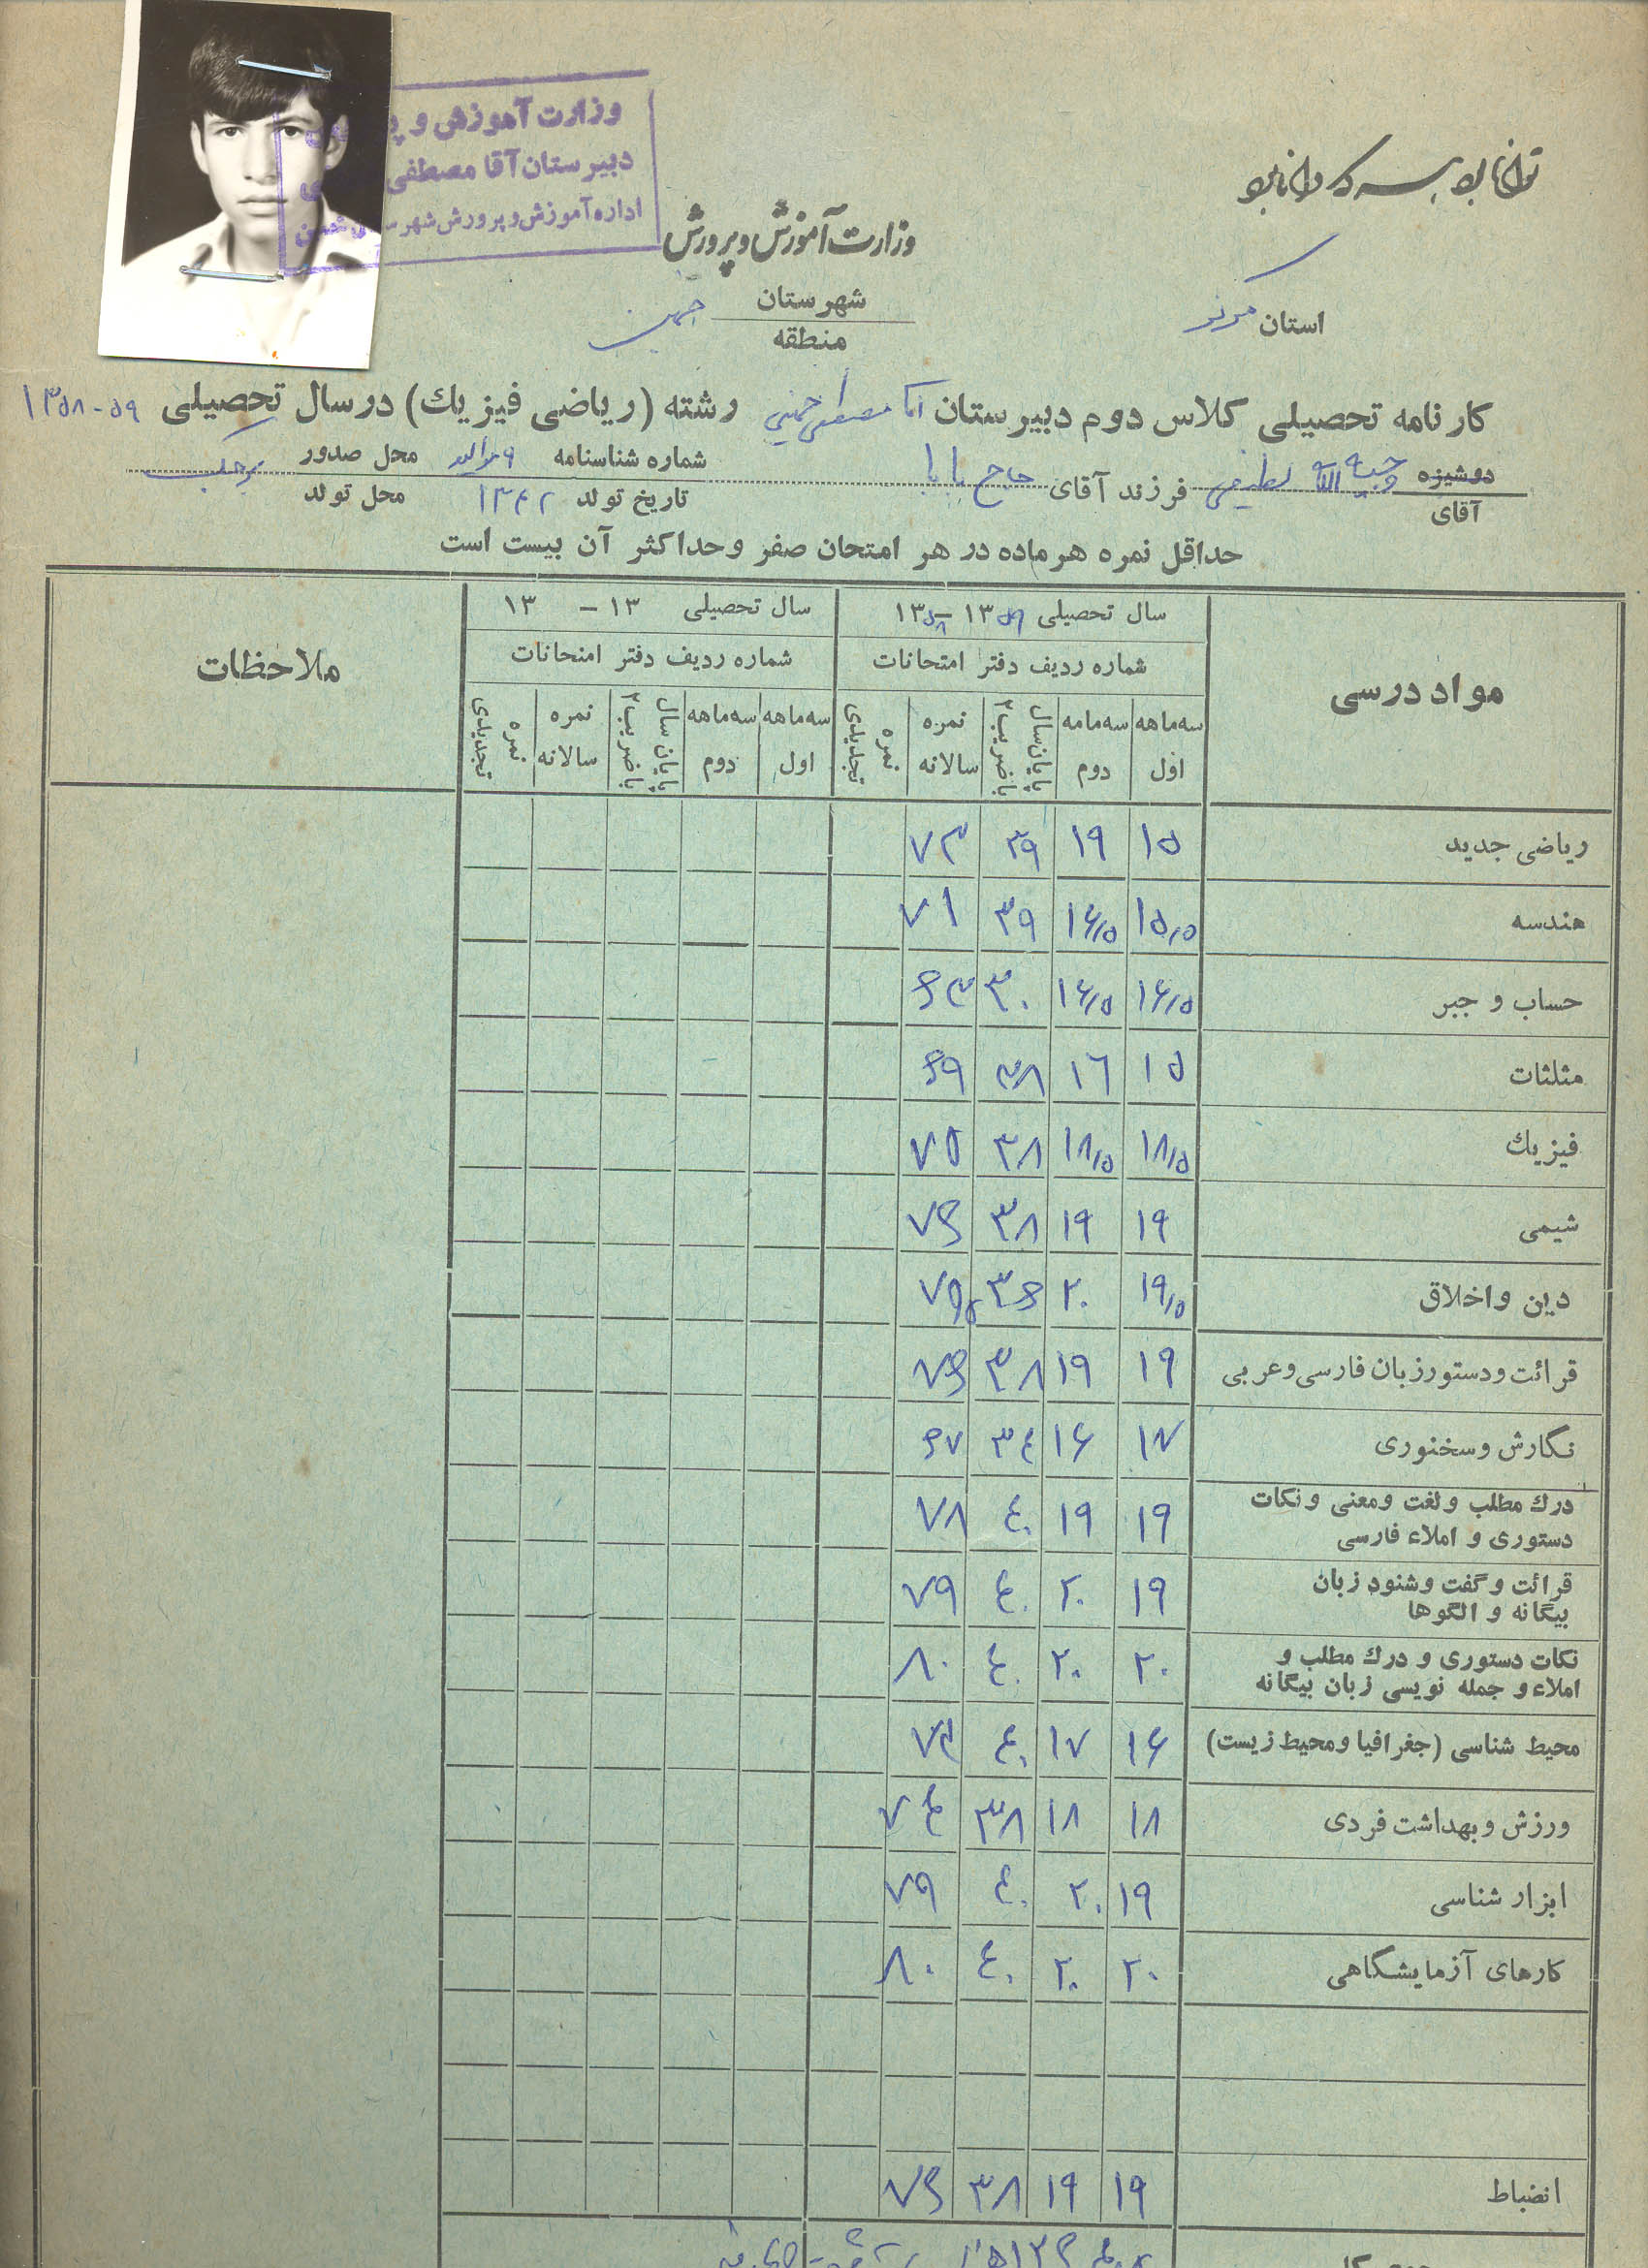 توانا بود هر که دانا بود
وزارت آموزش و
دبیرستان آقا مصطفی
اداره آموزش و پرورش شهرستان خمین
وزارت آموزش و پرورش
استان مرکزی
شهرستان خمین
منطقه
کارنامه تحصیلی کلاس دوم دبیرستان آقا مصطفی خمینی رشته (ریاضی فیزیك) در سال تحصیلی ۵۹-۱۳۵۸
دوشیزه
آقای
لطیفی فرزند آقای حاج بابا
شماره شناسنامه محل صدور
تاریخ تولد ۱۳۴۲ محل تولد
حداقل نمره هر ماده در هر امتحان صفر و حداکثر آن بیست است
مواد درسی
سال تحصیلی ۱۳۵۹ – ۱۳۵۸
سال تحصیلی ۱۳ – ۱۳
ملاحظات
شماره ردیف دفتر امتحانات
شماره ردیف دفتر امتحانات
سه‌ماهه اول
سه‌ماهه دوم
پایان سال با ضریب ۲
نمره سالانه
نمره تجدیدی
سه‌ماهه اول
سه‌ماهه دوم
پایان سال با ضریب ۲
نمره سالانه
نمره تجدیدی
ریاضی جدید ۱۵ ۱۹ ۳۹ ۷۳
هندسه ۱۵٫۵ ۱۶٫۵ ۳۹ ۷۱
حساب و جبر ۱۶٫۵ ۱۶٫۵ ۳۰ ۶۳
مثلثات ۱۵ ۱۶ ۳۸ ۶۹
فیزیك ۱۸٫۵ ۱۸٫۵ ۳۸ ۷۵
شیمی ۱۹ ۱۹ ۳۸ ۷۶
دین و اخلاق ۱۹٫۵ ۲۰ ۳۶ ۷۵٫۵
قرائت و دستور زبان فارسی و عربی ۱۹ ۱۹ ۳۸ ۷۶
نگارش و سخنوری ۱۷ ۱۶ ۳۴ ۶۷
درك مطلب و لغت و معنی و نکات
دستوری و املاء فارسی ۱۹ ۱۹ ۴۰ ۷۸
قرائت و گفت و شنود زبان
بیگانه و الگوها ۱۹ ۲۰ ۴۰ ۷۹
نکات دستوری و درك مطلب و
املاء و جمله نویسی زبان بیگانه ۲۰ ۲۰ ۴۰ ۸۰
محیط شناسی (جغرافیا و محیط زیست) ۱۶ ۱۷ ۴۰ ۷۳
ورزش و بهداشت فردی ۱۸ ۱۸ ۳۸ ۷۴
ابزار شناسی ۱۹ ۲۰ ۴۰ ۷۹
کارهای آزمایشگاهی ۲۰ ۲۰ ۴۰ ۸۰
انضباط ۱۹ ۱۹ ۳۸ ۷۶